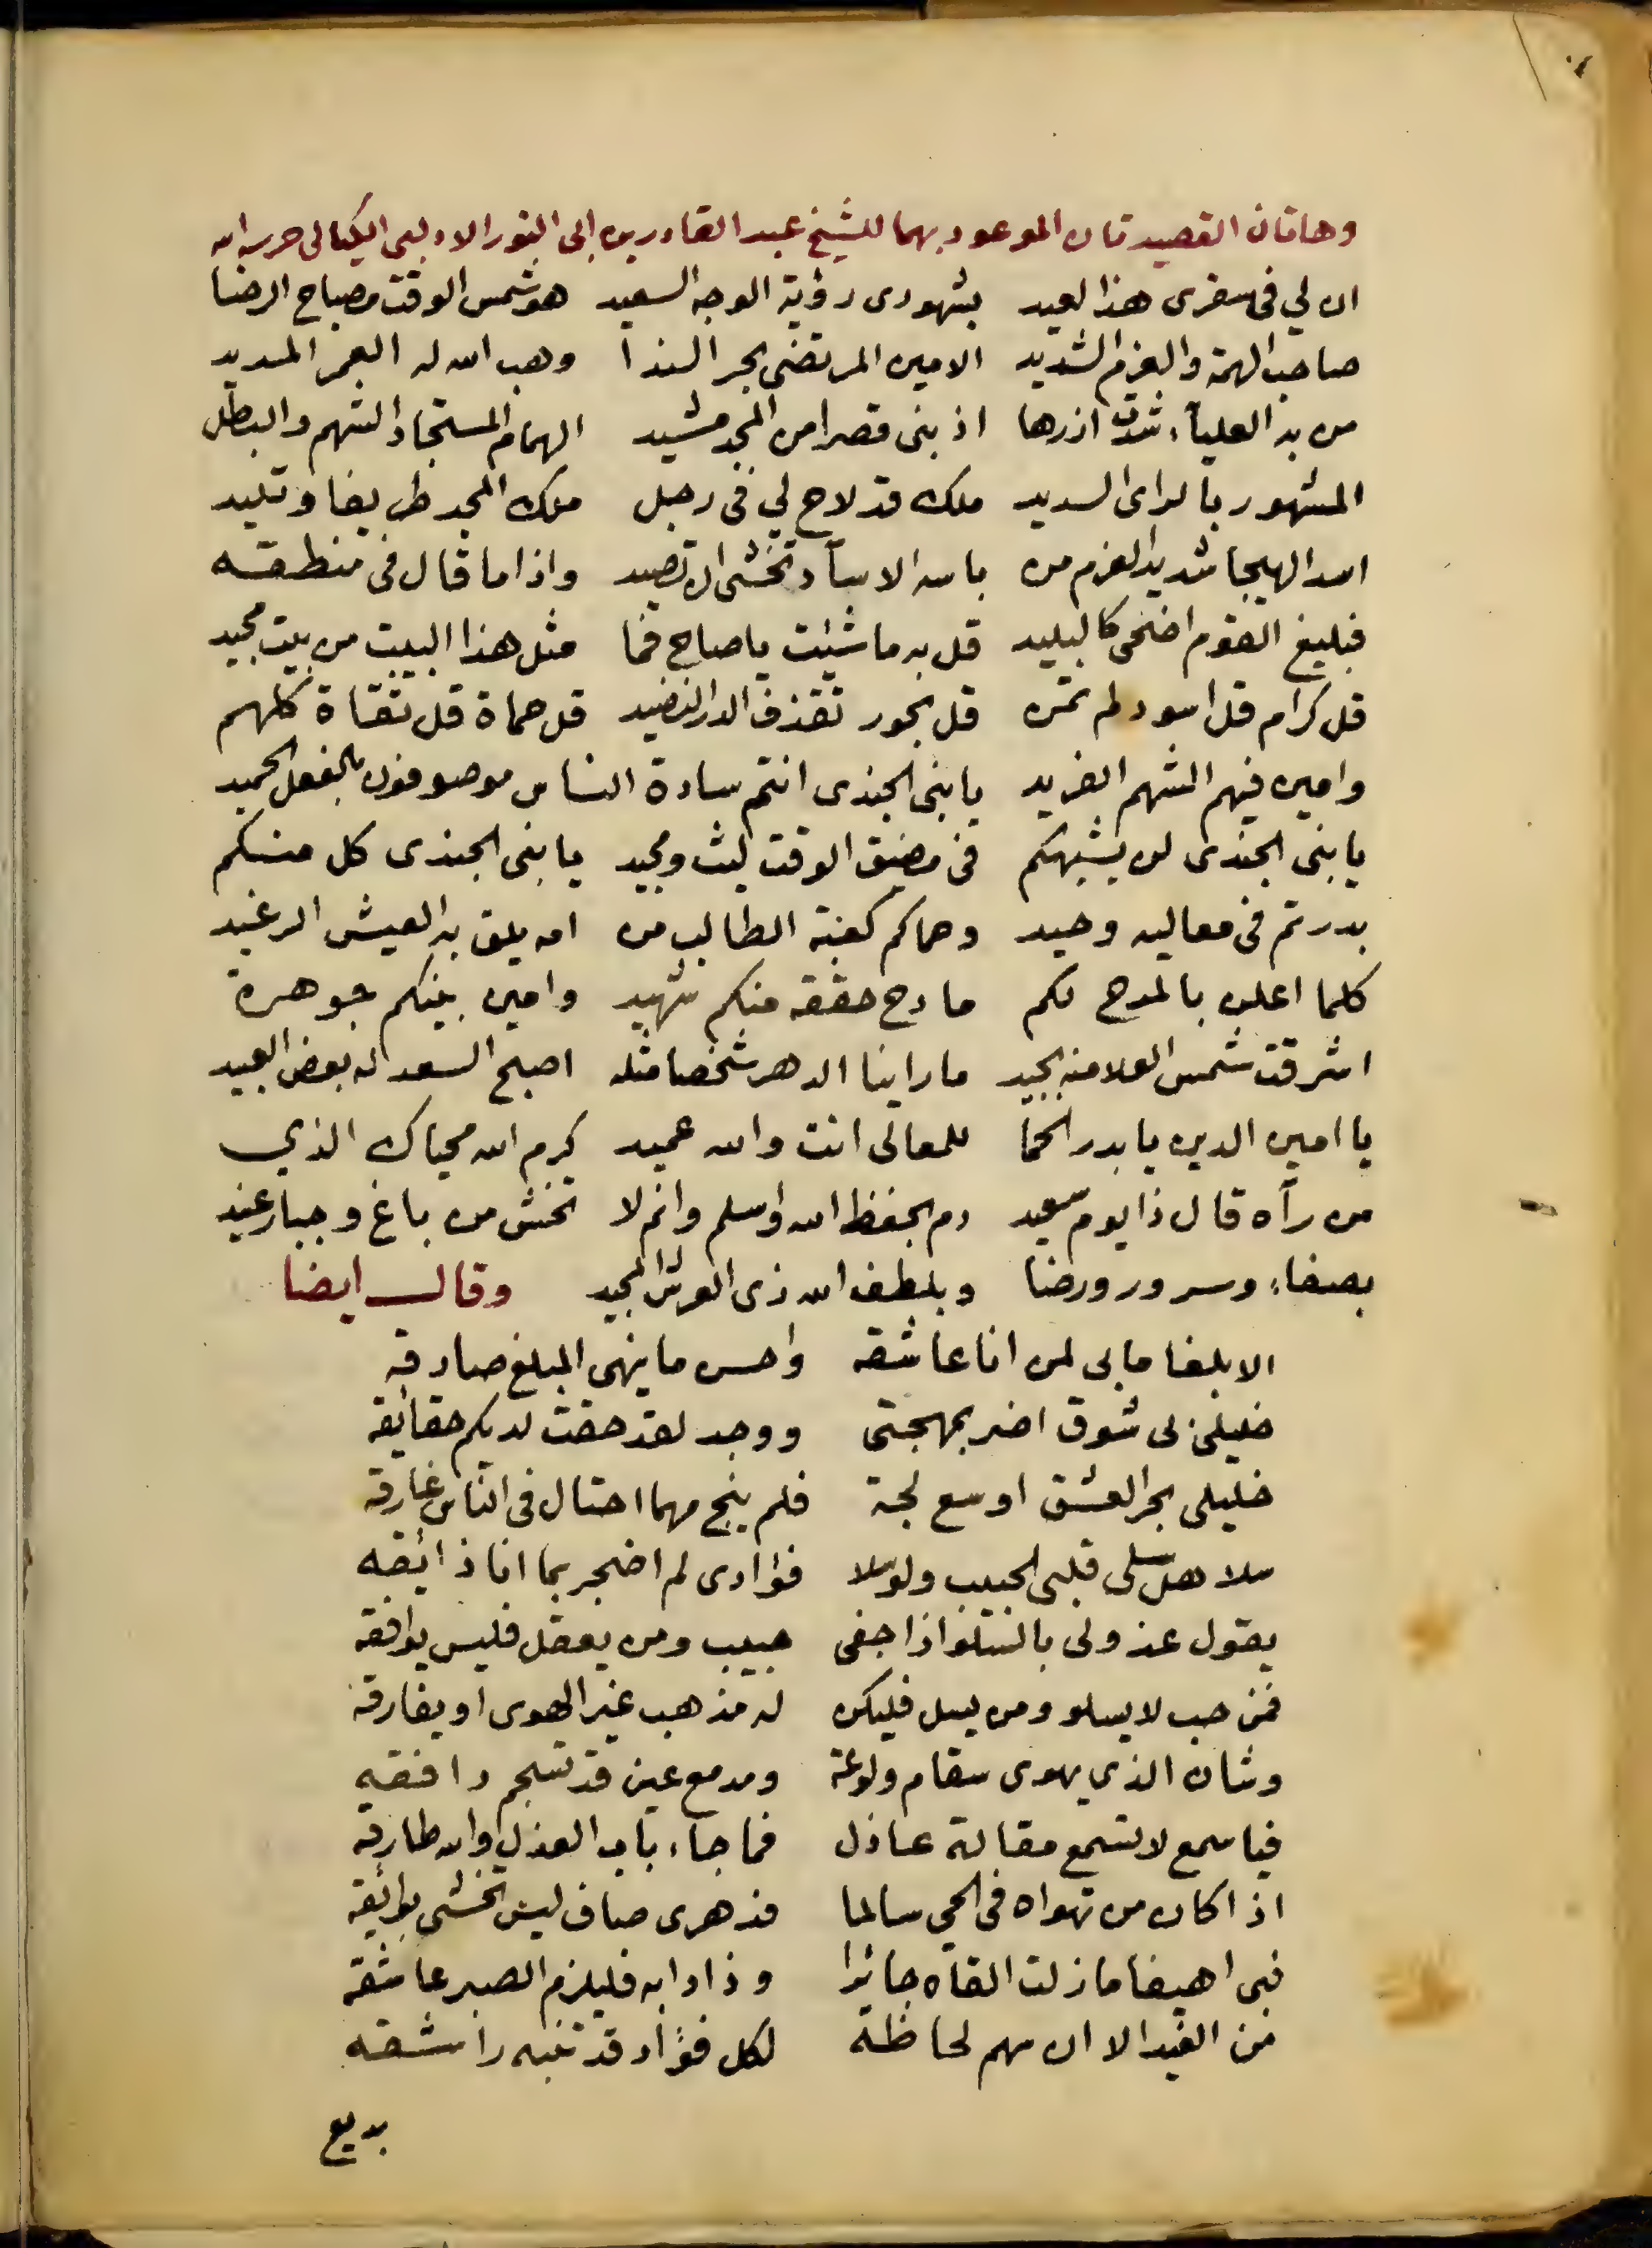 وهاتان القصيدتان الموعود بهما للشيخ عبد القادر بن ابى النور الادلبى الكيالى حرسه الله
ان لي فى سفرى هذا لعيد بشهودى رؤية الوجه السعيد هو شمس الوقت مصباح الرضا
صاحب الهمة والعزم الشديد الامين المرتضى بحر الندا وهب الله له العمر المديد
من به العليآء شدت ازرها اذ بنى قصرا من المجد مشيد الهمام المستجاد الشهم والبطل
المشهور بالراى السديد ملك قد لاح لي فى رجل ملك المجد طريفا وتليد
اسد الهيجا شديد العزم من باسه الاسآد تخشى ان تصيد واذا ما قال فى منطقه
فبليغ القوم اضحى كالبليد قل به ما شئت يا صاح فما مثل هذا البيت من بيت مجيد
قل كرام قل اسود لم تمن قل بحور تقذف الدر النضيد قل حماة قل تقاة كلهم
وامين فيهم الشهم الفريد يا بنى الجندى انتم سادة الناس موصوفون بالفعل الحميد
يا بنى الجندى لن يشبهكم فى مضيق الوقت ليث ومجيد يا بنى الجندى كل منكم
بدر تم فى معاليه وحيد وحماكم كعبة الطالب من امه يلق به العيش الرغيد
كلما اعلن بالمدح لكم مادح حققه منكم شهيد وامين بينكم جوهرة
اشرقت شمس العلا منه بجيد ما راينا الدهر شخصا مثله اصبح السعد له بعض العبيد
يا امين الدين يا بدر الحما للمعالى انت والله عميد كرم الله محياك الذي
من رآه قال ذا يوم سعيد دم بحفظ الله واسلم وانم لا تخش من باغ وجبار عنيد
بصفاء وسرور ورضا وبلطف الله ذى العرش المجيد وقال ايضا
الا بلغا ما بى لمن انا عاشقه واحسن ما ينهى المبلغ صادقه
خليلى لى شوق اضر بمهجتى ووجد لقد حقت لديكم حقايقه
خليلى بحر العشق اوسع لجة فلم ينج مهما احتال فى الناس غارقه
سلا هل سلى قلبى الحبيب ولو سلا فؤادى لم اضجر بما انا ذائقه
يقول عذولى بالتسلو اذا جفى حبيب ومن يعقل فليس يوافقه
فمن حب لا يسلو ومن يسل فليكن له مذهب غير الهوى او يفارقه
وشان الذي يهوى سقام ولوعة ومدمع عين قد تسجم دافقه
فيا سمع لا تسمع مقالة عاذل فما جاء باب العذل والله طارقه
اذا كان من تهواه فى الحي سالما فدهرى صاف ليس تخشى بوائقه
فبى اهيفا ما زلت القاه جائرا وذا دابه فليلزم الصبر عاشقه
من الغيد الا ان سهم لحاظه لكل فؤاد قد تنبه راشقه
بديع